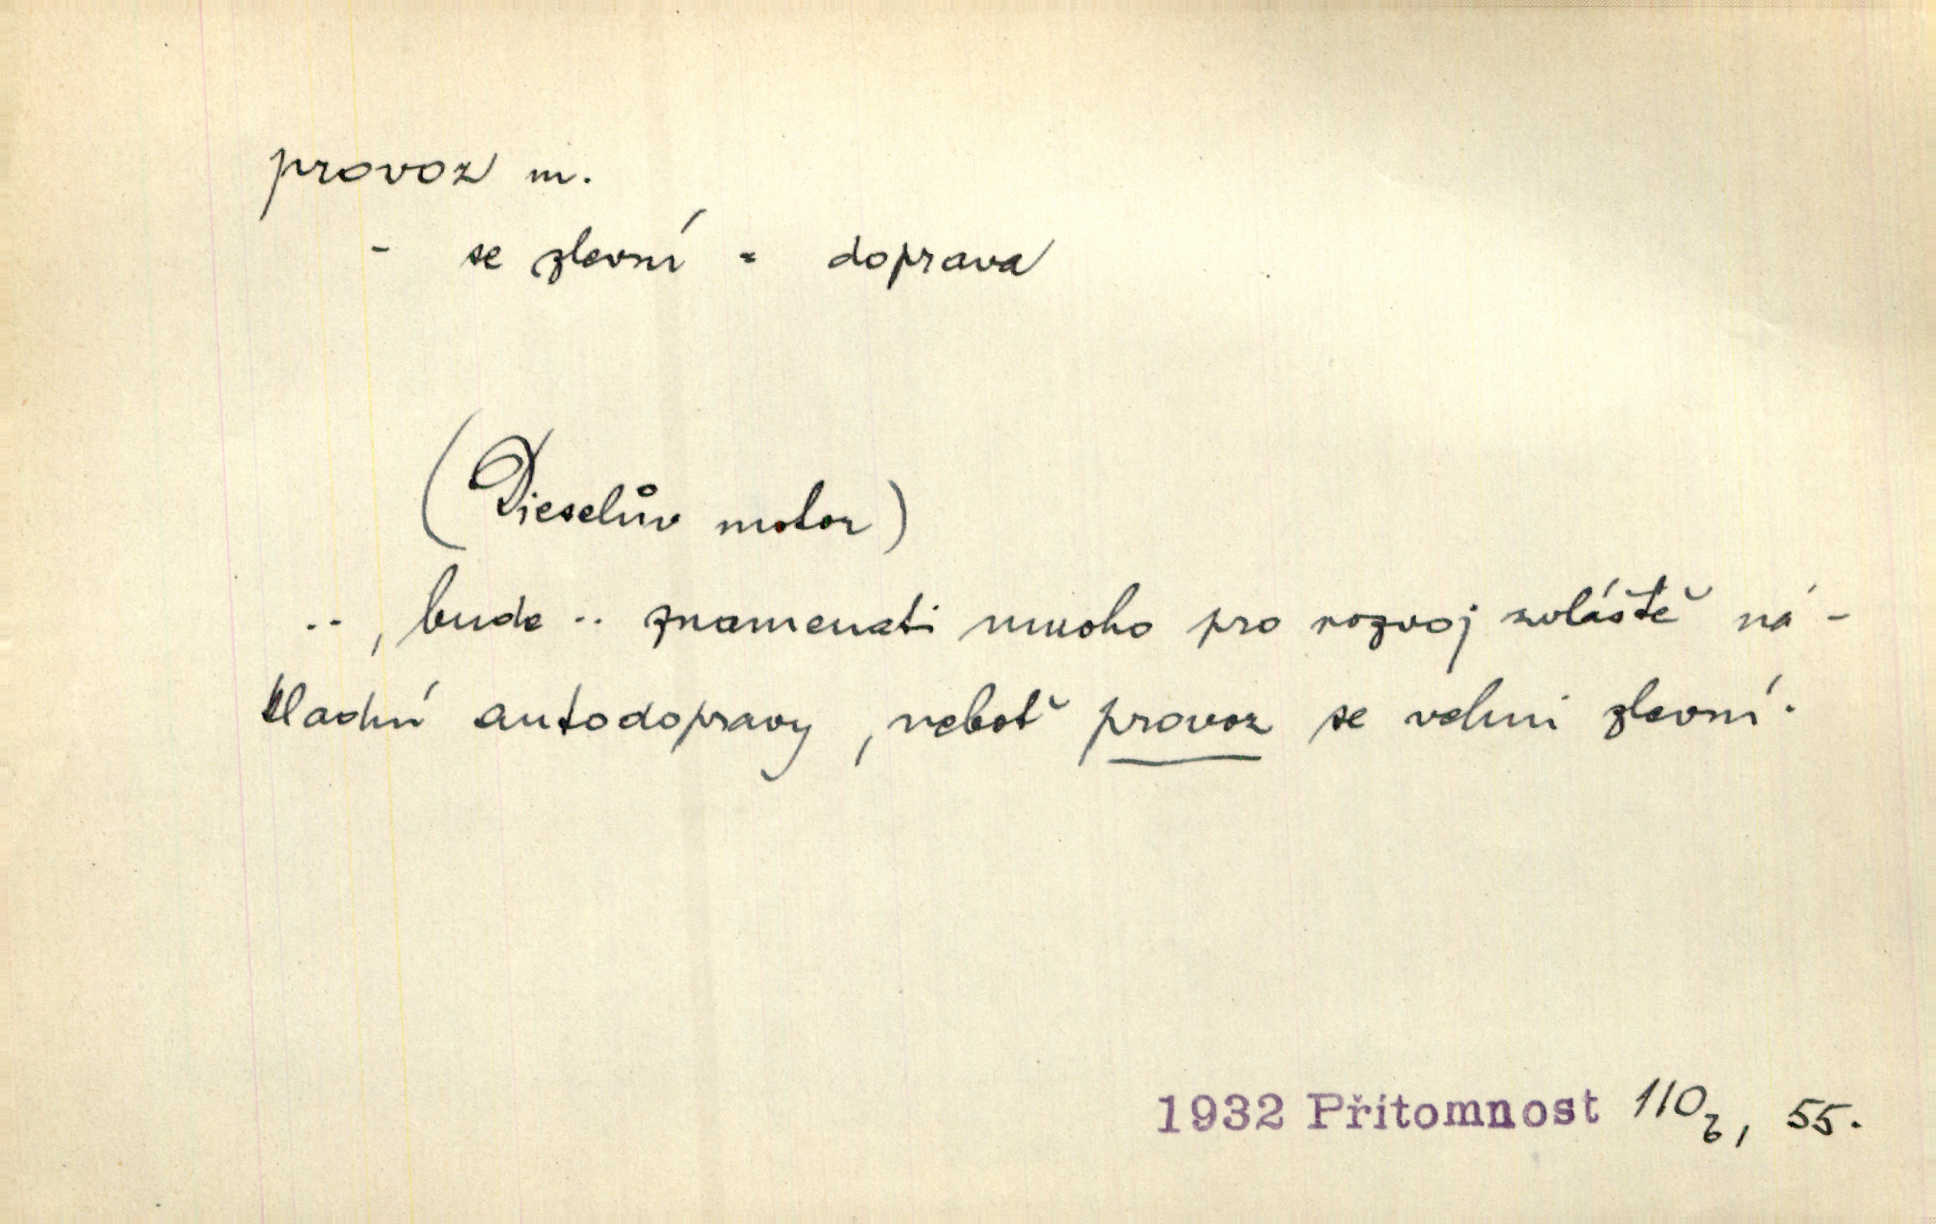 provoz m.
- se zlevní = doprava
(Dieselův motor)
.., bude .. znamenati mnoho pro rozvoj zvláště ná-
kladní autodopravy, neboť provoz se velmi zlevní.
1932 Přítomnost 110b, 55.